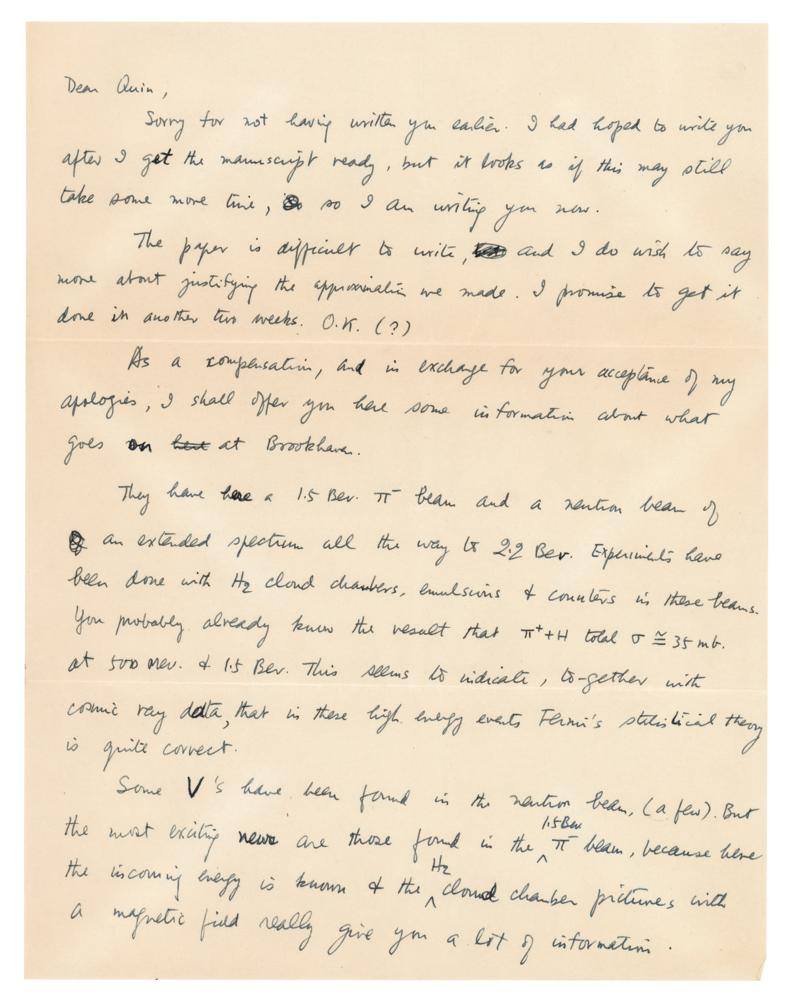 Dear Quin,
Sorry for not having written you earlier. I had hoped to write you
after I get the manuscript ready, but it looks as if this may still
take some more time, so I am writing you now.
The paper is difficult to write, and I do wish to say
more about justifying the approximation we made. I promise to get it
done in another two weeks. O.K. (?)
As a compensation, and in exchange for your acceptance of my
apologies, I shall offer you here some information about what
goes on here at Brookhaven.
They have here a 1.5 Bev. π⁻ beam and a neutron beam of
an extended spectrum all the way to 2.2 Bev. Experiments have
been done with H₂ cloud chambers, emulsions & counters in these beams.
You probably already know the result that π⁺+H total σ ≅ 35 mb.
at 500 Mev. & 1.5 Bev. This seems to indicate, to-gether with
cosmic ray data, that in these high energy events Fermi's statistical theory
is quite correct.
Some V's have been found in the neutron beam, (a few). But
the most exciting news are those found in the 1.5 Bev. π⁻ beam, because here
the incoming energy is known & the H₂ cloud chamber pictures with
a magnetic field really give you a lot of information.